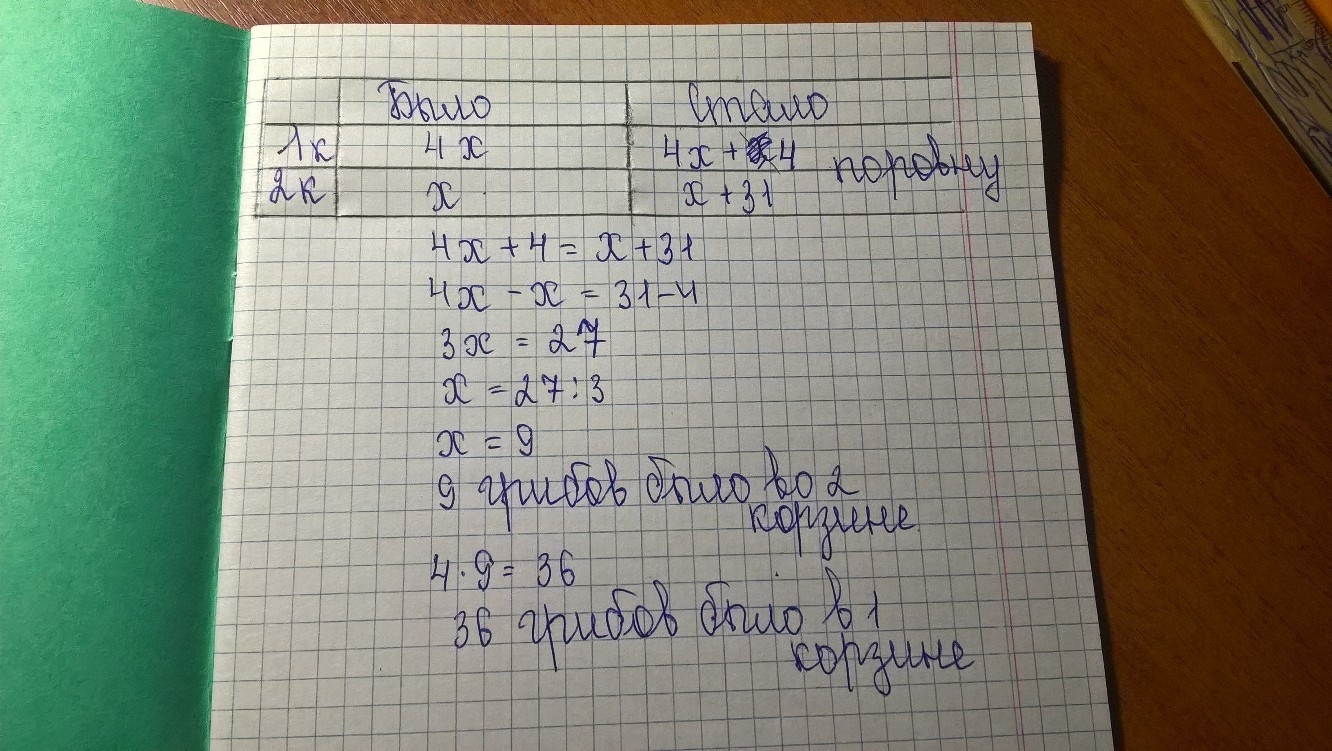 Было Стало
1к 4x 4x + 4 поровну
2к x x + 31
4x + 4 = x + 31
4x - x = 31 - 4
3x = 27
x = 27 : 3
x = 9
9 грибов было во 2
корзине
4 · 9 = 36
36 грибов было в 1
корзине